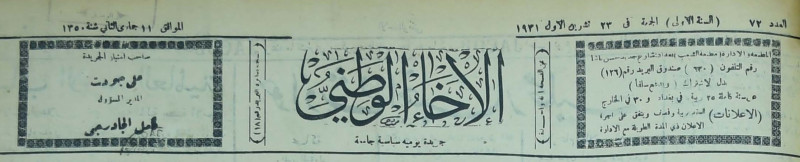 العدد ٧٢ (السنة الاولى) الجمعة في ٢٣ تشرين الاول ١٩٣١ الموافق ١١ جمادى الثاني سنة ١٣٥٠
رقم التلفون (٦٣٠) صندوق البريد رقم (١٢٦)
بدل الاشتراك (ويدفع سلفا)
عن سنة كاملة ٢٥ ربية في بغداد و ٣٠ في الخارج
(الاعلانات)
الاعلان في المدة الطويلة مع الادارة
الاخاء الوطني
جريدة يومية سياسية جامعة
صاحب امتياز الجريدة
علي جودت
المدير المسؤول
كامل الجادرجي